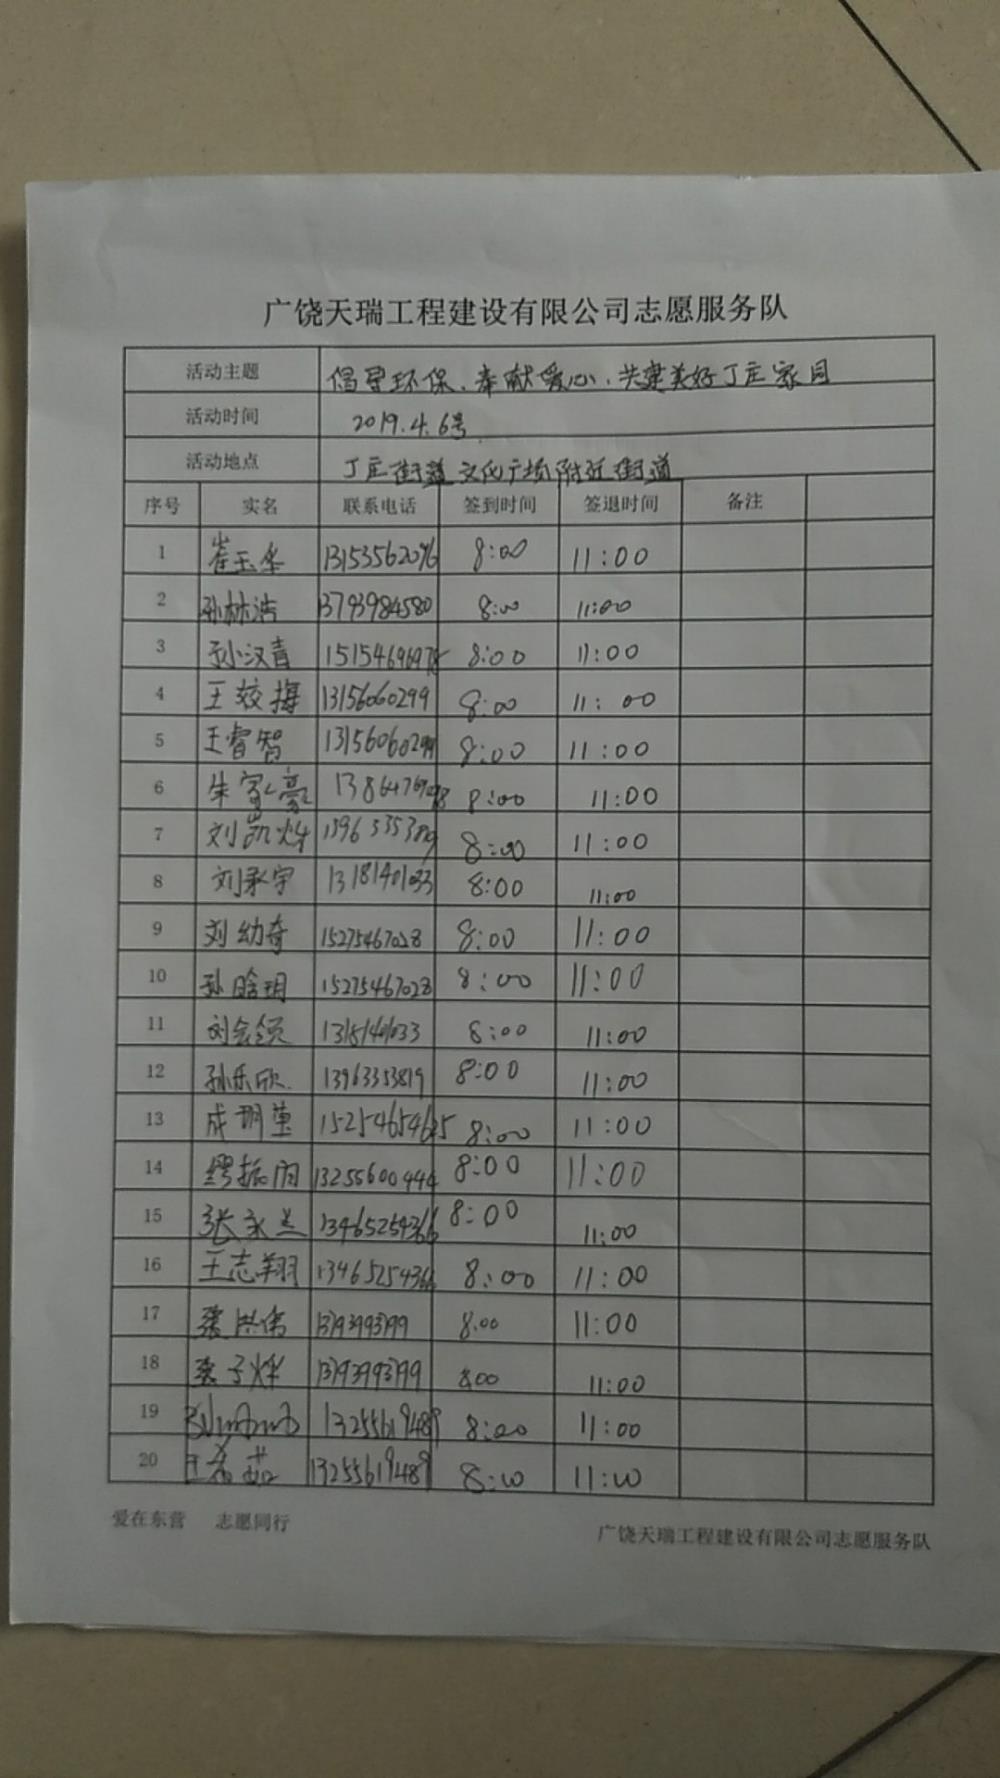 广饶天瑞工程建设有限公司志愿服务队
活动主题 倡导环保、奉献爱心、共建美好丁庄家园
活动时间 2019.4.6号
活动地点 丁庄街道文化广场附近街道
序号 实名 联系电话 签到时间 签退时间 备注
1 崔玉华 13153562096 8:00 11:00
2 孙林浩 13793984580 8:00 11:00
3 孙汉青 8:00 11:00
4 王姣梅 13156060299 8:00 11:00
5 王睿智 13156060299 8:00 11:00
6 朱家豪 8:00 11:00
7 刘凯烨 8:00 11:00
8 刘承宇 13181401033 8:00 11:00
9 刘幼奇 15275467028 8:00 11:00
10 孙晗玥 15275467028 8:00 11:00
11 8:00 11:00
12 孙乐欣 13963353819 8:00 11:00
13 成玥莹 8:00 11:00
14 13255600444 8:00 11:00
15 张永兰 13465254366 8:00 11:00
16 王志翔 13465254366 8:00 11:00
17 张洪伟 8:00 11:00
18 张子烨 8:00 11:00
19 13255619489 8:00 11:00
20 王茗茹 13255619489 8:00 11:00
爱在东营 志愿同行 广饶天瑞工程建设有限公司志愿服务队